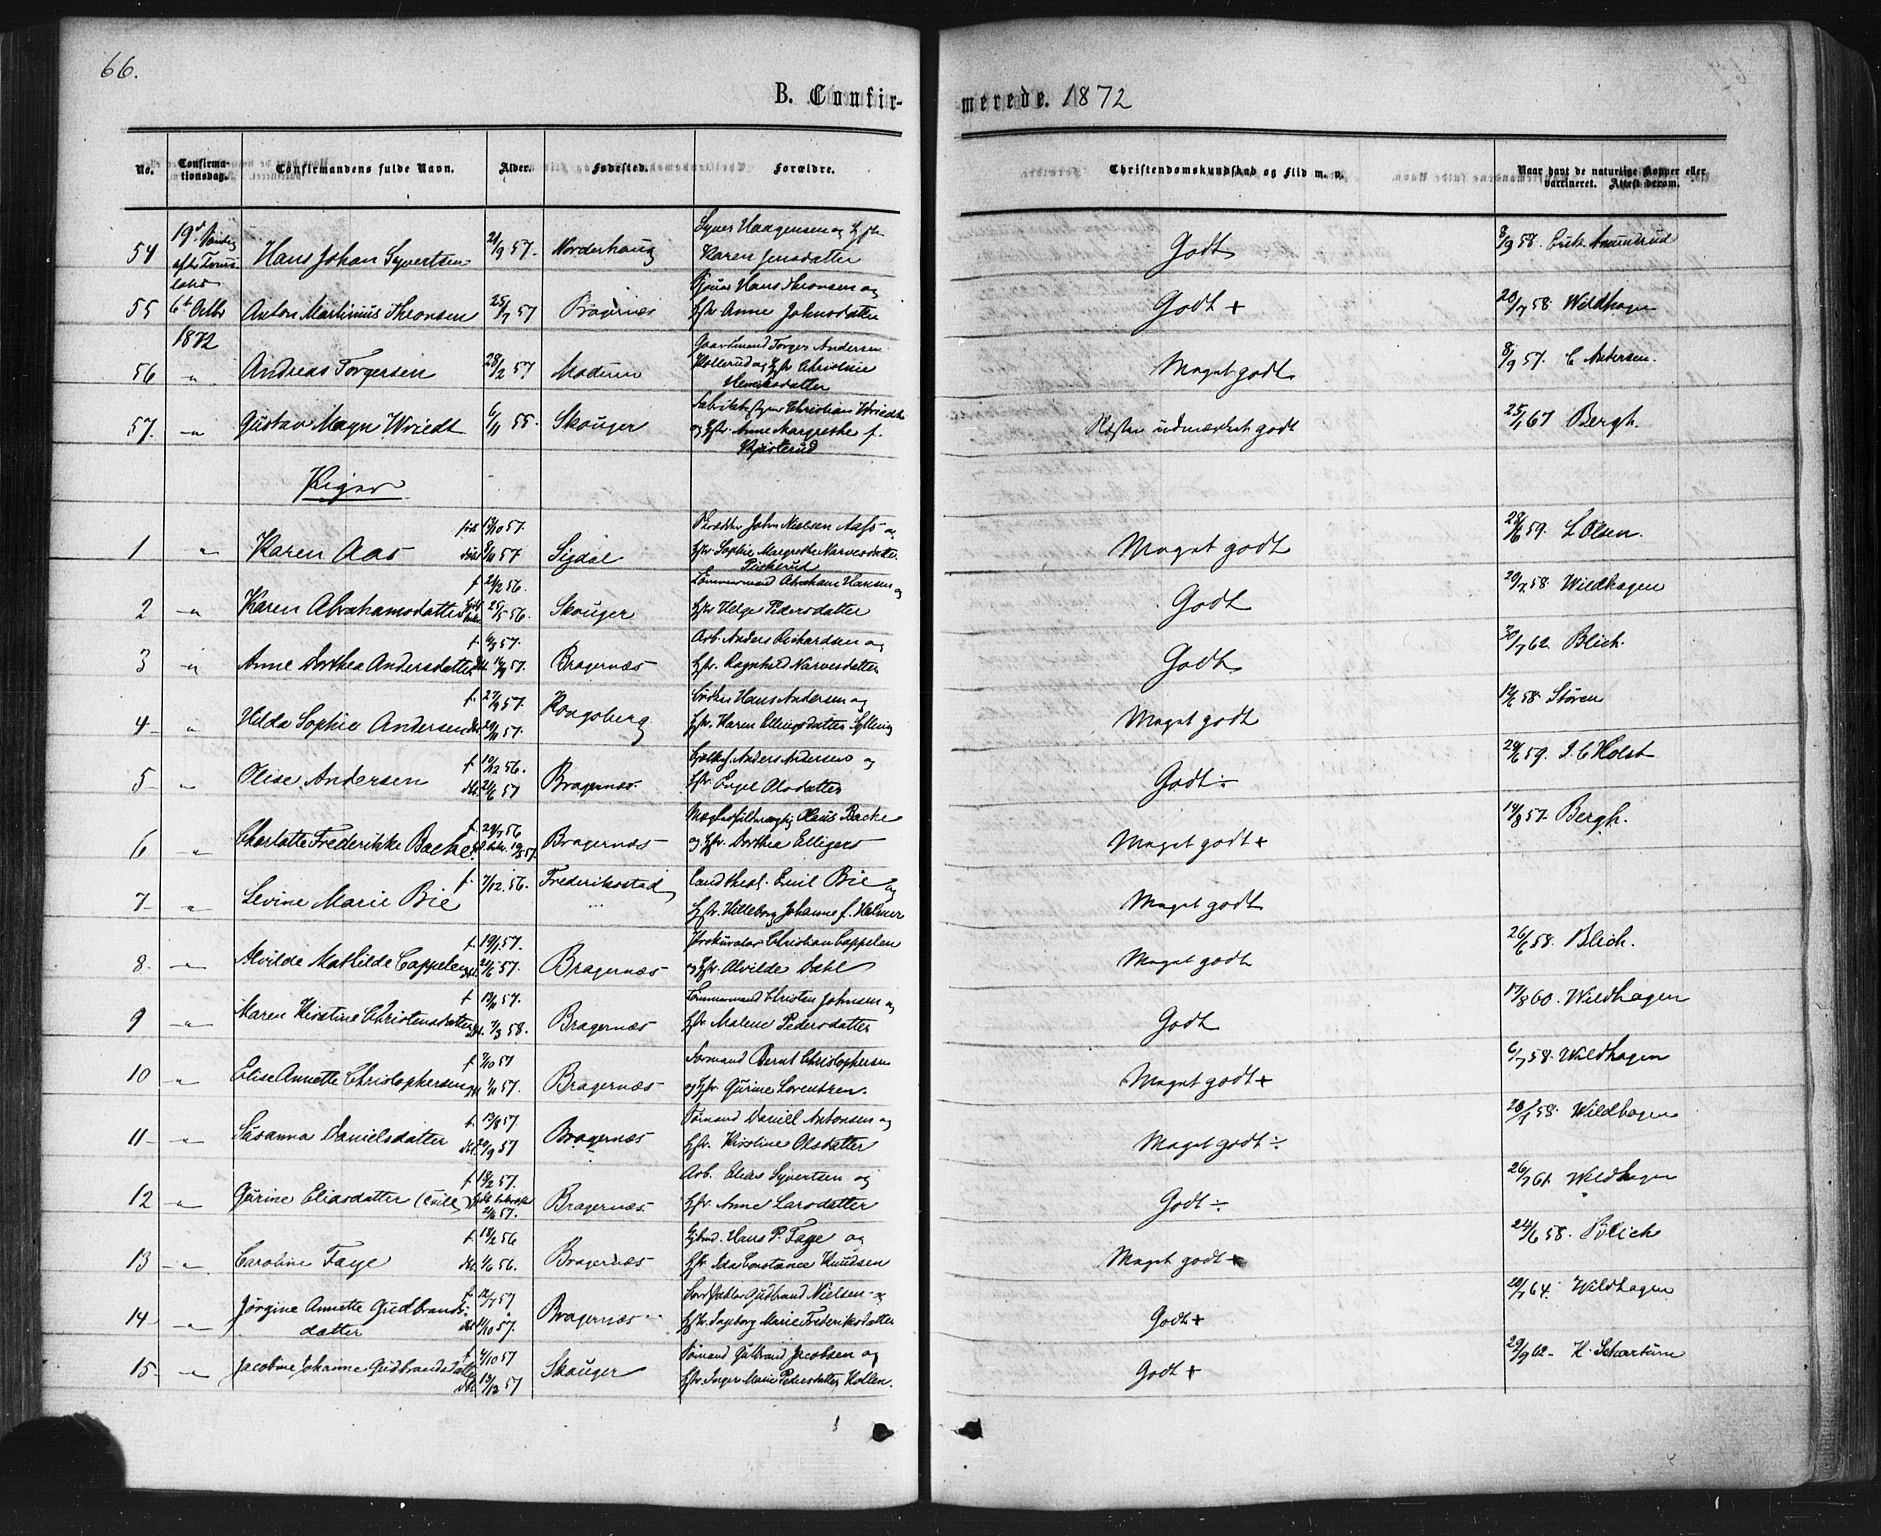 66.
B. Confir-
merede. 1872
No. Confirmationsdag. Confirmandens fulde Navn. Alder. Fødested. Forældre. Christendomskundskab og Flid m. v. Naar havt de naturlige Kopper eller vaccineret. Attest derom.
54 19d Søndag efter 6t Octbr 1872 Hans Johan Syvertsen 21/9 57. Norderhoug Syver Haagensen og Hstr Karen Jensdatter Godt 8/9 58.
55 Anton Martinius Thronsen 25/7 57 Bragernes Hans Thronsen og Hstr Anne Johnsdatter Godt + 20/7 58 Wildhagen
56 " Andreas Torgersen 28/2 57 Modum Gaardmand Torger Andersen Kollerud og Hstr Christine Henriksdatter Meget godt 8/9 57. C Andersen.
57. " Gustav Magn Wriedt 6/11 55. Skouger Christian Wriedt og Hstr. Anne Margrethe f. Kjøsterud Næsten udmærket godt 25/1 67 Bergh.
Piger
1 " Karen Aas fød 13/10 57. døbt 8/11 57 Sigdal John Nielsen Aas og Hstr. Sophie Margrethe Narvesdatter Meget godt 29/6 59. L Olsen.
2 " Karen Abrahamsdatter f. 21/2 56. 25/5 56. Skouger Tømmermand Abraham Hansen og Hstr Helge Pedersdatter Godt 20/7 58. Wildhagen
3 " Anne Dorthea Andersdatter Bragernæs Arb. Anders Richardsen og Hstr. Ragnhild Narvesdatter Godt 30/7 62. Blich.
4 " Hilda Sophie Andersen Kongsberg Hans Andersen og Hstr. Karen Ellingsdatter Meget godt 58. Støren
5 " Olise Andersen f 10/12 56. dbt. 21/6 57 Bragernæs Anders Andersen og Hstr. Engel Olsdatter Godt ÷ 59. J. C Holst
6 " Charlotte Frederikke Backe Bragernæs Claus Backe og Hstr. Dorthea Elligers Meget godt + 14/8 57. Bergh.
7 " Levine Marie Bie f. 7/12 56. Frederikstad Cand theol. Emil Bie og Hstr. Hilleborg Johanne f. Helmer Meget godt
8. " Alvilde Mathilde Cappelen f 19/1 57. dbt 21/6 57. Bragernæs Prokurator Christian Cappelen og Hstr. Alvilde Dahl Meget godt 26/6 58. Blich.
9 " Maren Kirstine Christensdatter dbt. 7/3 58. Bragernæs Tømmermand Christen Johnsen og Hstr. Malene Pedersdatter Godt 17/8 60. Wildhagen
10 " Elise Annette Christophersen f 7/10 57 dbt 1/11 57. Bragernæs Formand Bernt Christophersen og Hstr. Gurine Lorentzen. Meget godt + 6/7 58. Wildhagen
11 " Susanna Danielsdatter f. 13/8 57. dbt. 20/9 57 Bragernæs Daniel Antonsen og Hstr. Kirstine Olsdatter Meget godt ÷ 58. Wildhagen
12 " Gurine Eliasdatter f 19/2 57. Bragernæs Arb. Elias Syvertsen og Hstr. Anne Larsdatter Godt ÷ 26/7 61. Wildhagen
13 " Caroline Faye f 19/2 56 dbt. 1/6 56. Bragernæs Hans P. Faye og Hstr Ida Constance Knudsen Meget godt + 24/6 58. Blich
14 " Jørgine Annette Gudbrandsdatter f 12/7 57 dbt 11/10 57. Bragernæs Gudbrand Nielsen og Hstr. Ingeborg Marie Frederiksdatter Godt + 20/7 64. Wildhagen
15 " Jacobine Johanne Gudbrandsdatter f 4/10 57 dbt 13/12 57 Skouger Gulbrand Jacobsen og Hstr. Inger Marie Pedersdatter Hollen. Godt + 29/9 62 H. Schartum